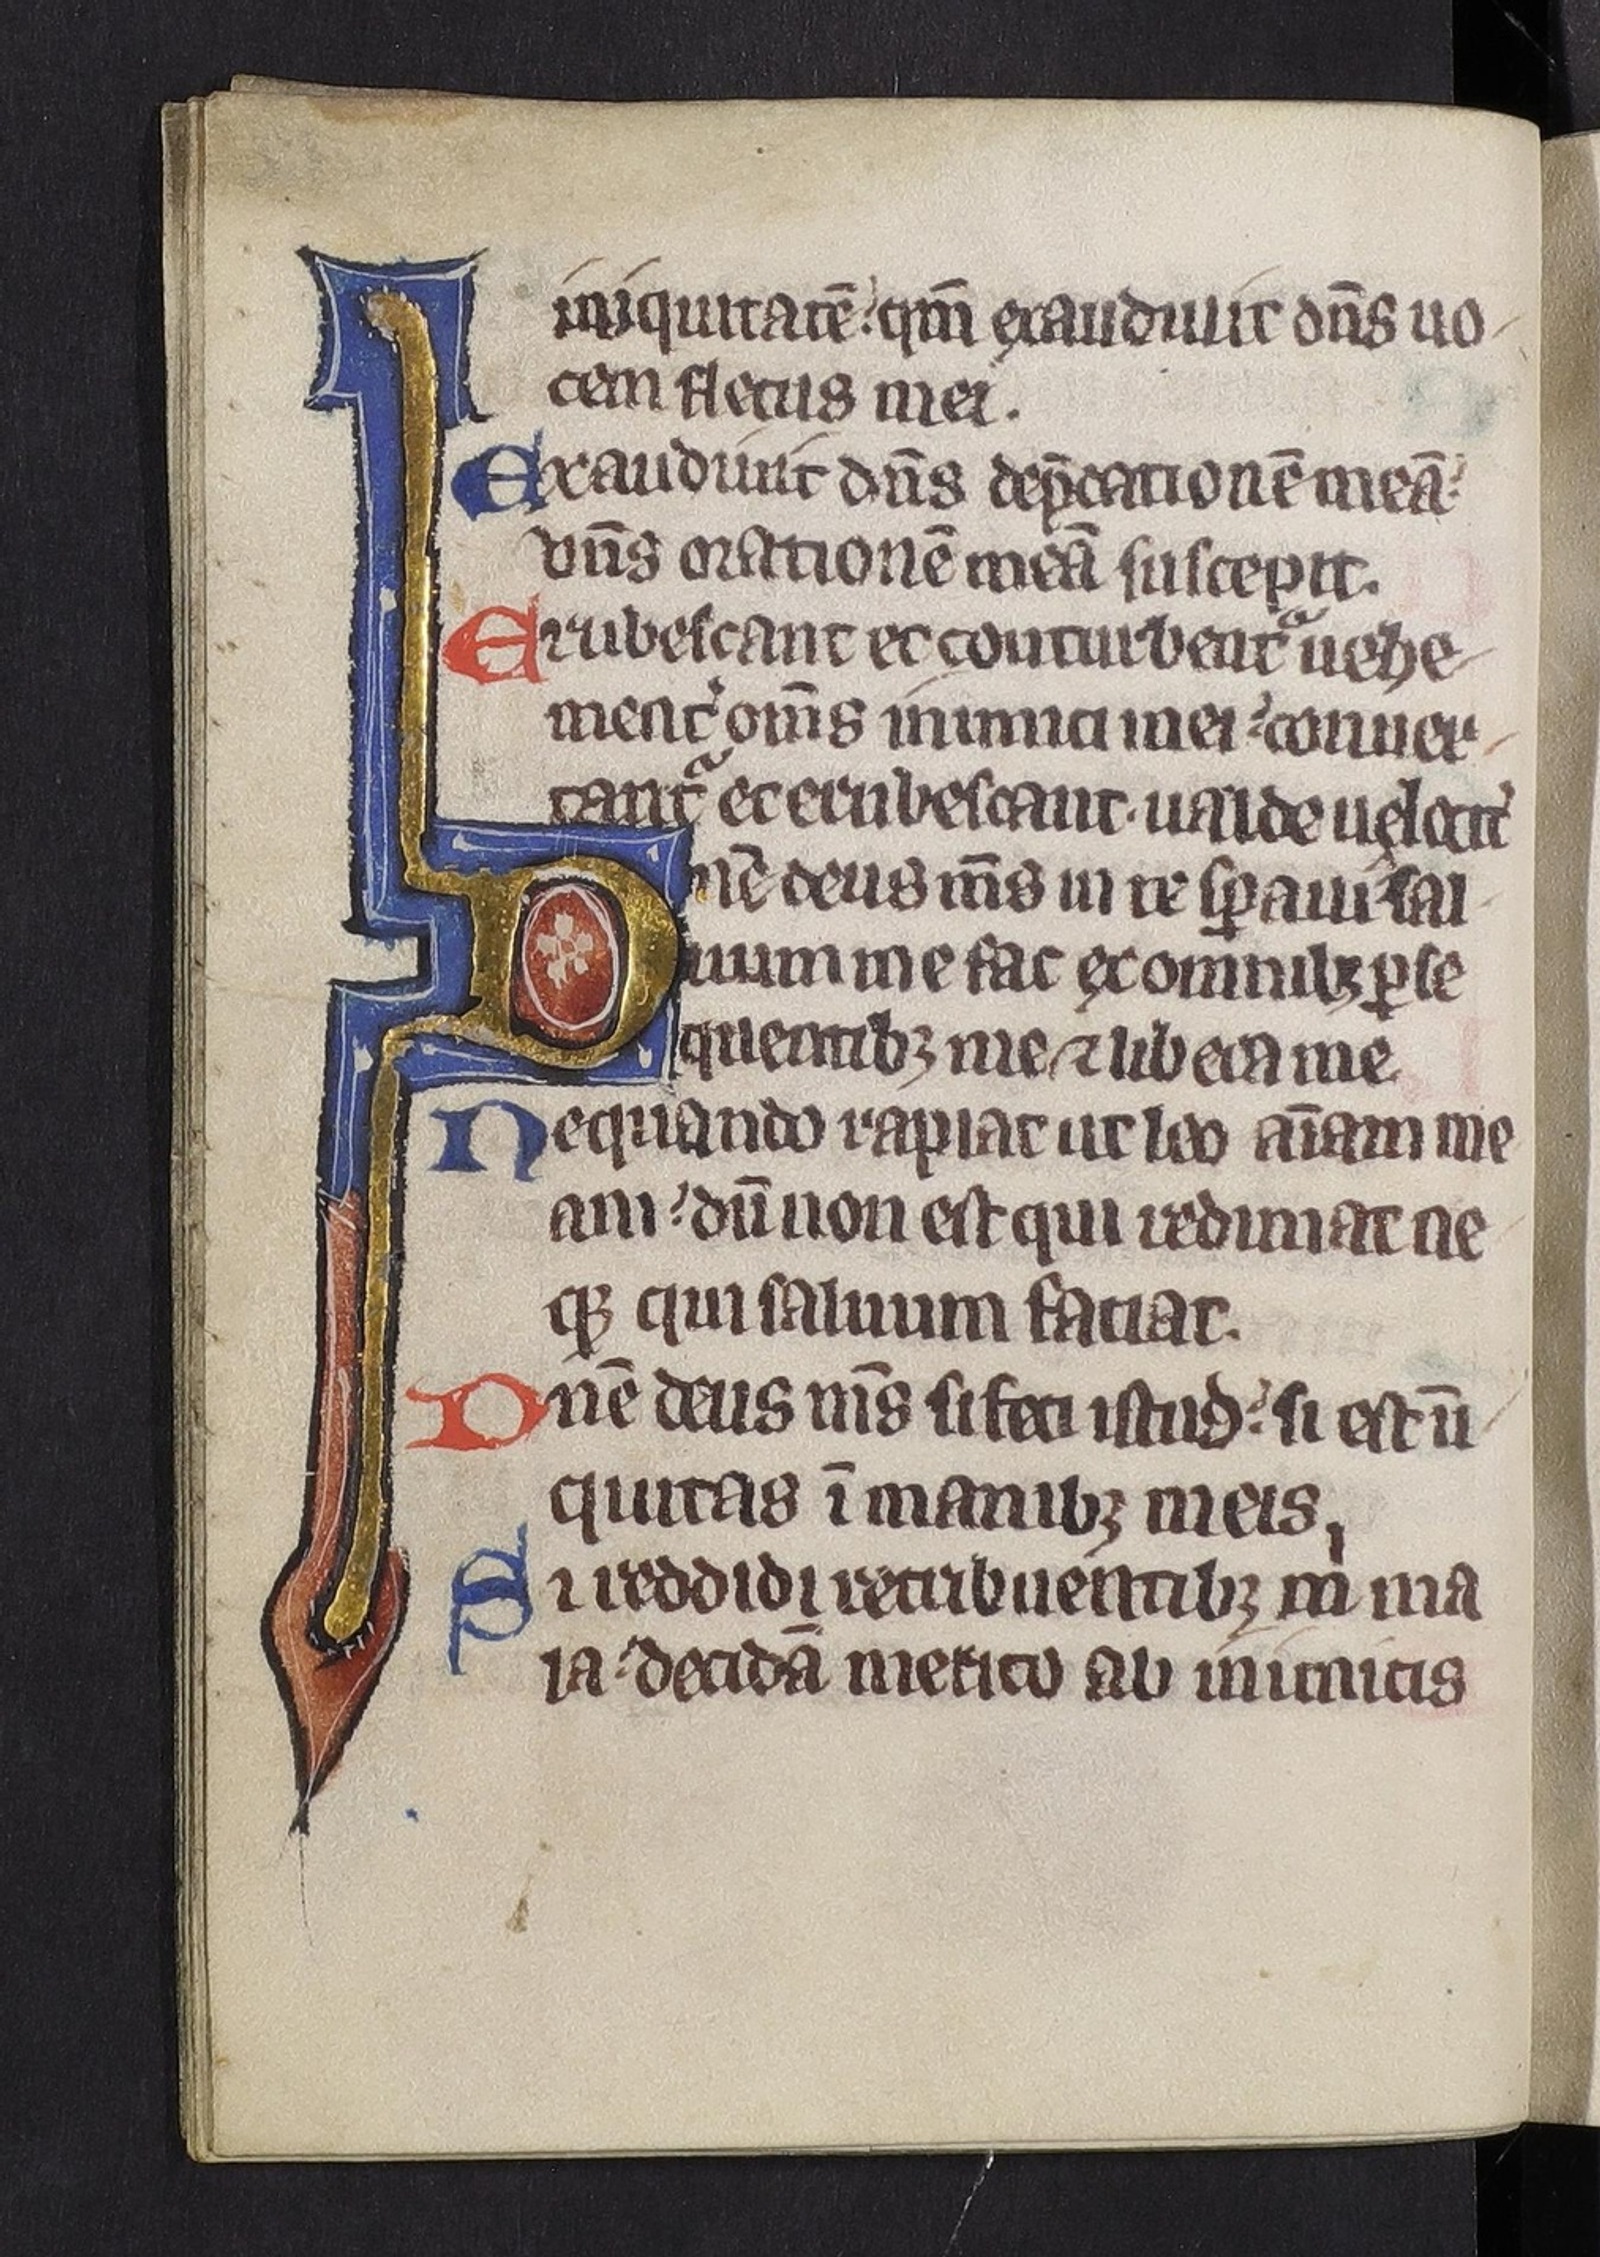 iniquitatē: qm̄ exaudiuit dn̄s uo
cem fletus mei.
Exaudiuit dn̄s dep̄cationē meā:
dn̄s orationē meā suscepit.
Erubescant et conturbentᷓ uehe
ment᷑ om̄s inimici mei: conuer
tantᷓ et erubescant ualde uelocit᷑
Dn̄e deus m̄s in te sꝑaui sal
uum me fac ex omnibꝫ ꝑse
quentibꝫ me ⁊ libera me
Nequando rapiat ut leo aīam me
am: dū non est qui redimat ne
qꝫ qui saluum faciat.
Dn̄e deus m̄s si feci istud: si est īi
quitas ī manibꝫ meis,
Si reddidi retribuentibꝫ m̍ ma
la: decidā merito ab inimicis